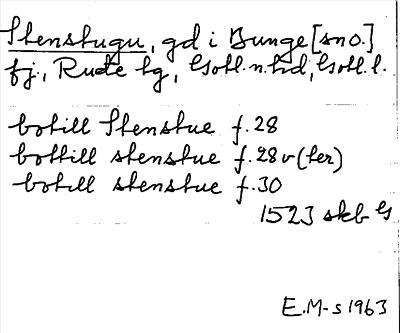 Stenstugu, gd i Bunge [sno.]
fj., Rute sg, Gotl.n.hd, Gotl.l.
botill Stenstue f.28
bottill stenstue f.28v (ter)
botill stenstue f.30
1523 skb G
E.M-s 1963